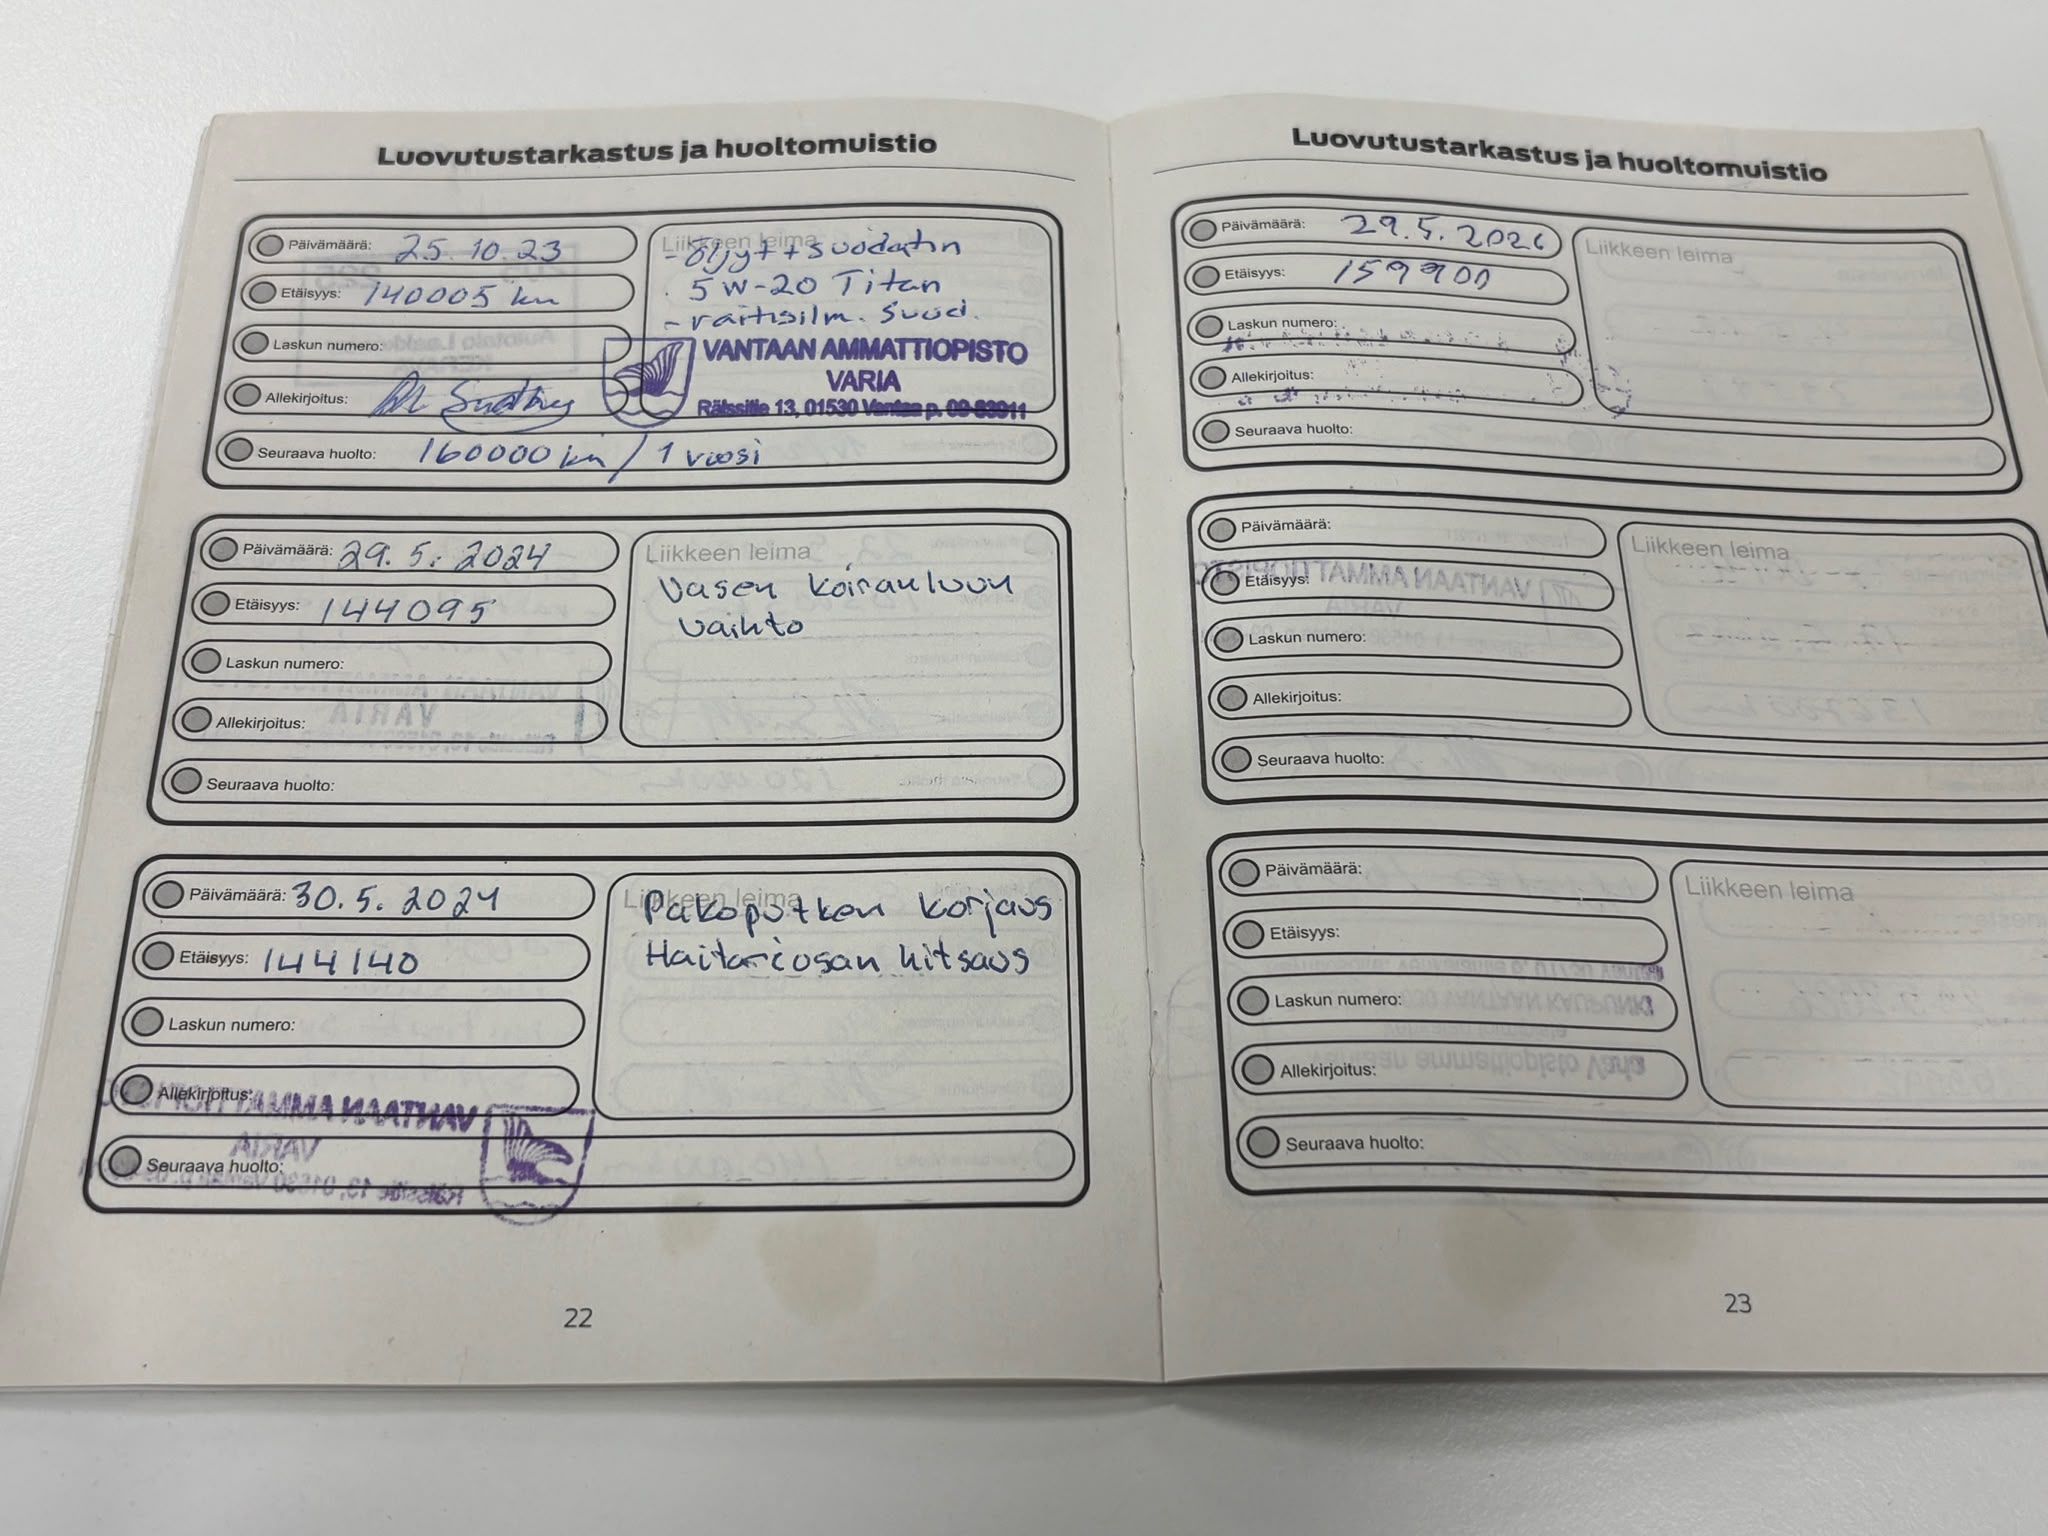 Luovutustarkastus ja huoltomuistio
Päivämäärä: 25.10.23
Etäisyys: 140005 km
Laskun numero:
Allekirjoitus:
Liikkeen leima
- öljyt + suodatin
5W-20 Titan
- raitisilm. suod.
VANTAAN AMMATTIOPISTO
VARIA
Rälssitie 13, 01530 Vantaa p. 09-83911
Seuraava huolto: 160000 km / 1 vuosi
Päivämäärä: 29.5.2024
Etäisyys: 144095
Laskun numero:
Allekirjoitus:
Liikkeen leima
Vasen koiranluun
vaihto
Seuraava huolto:
Päivämäärä: 30.5.2024
Etäisyys: 144140
Laskun numero:
Allekirjoitus:
Liikkeen leima
Pakoputken korjaus
Haitariosan hitsaus
Seuraava huolto:
22
Luovutustarkastus ja huoltomuistio
Päivämäärä: 29.5.2026
Etäisyys: 159900
Laskun numero:
Allekirjoitus:
Liikkeen leima
Seuraava huolto:
Päivämäärä:
Etäisyys:
Laskun numero:
Allekirjoitus:
Liikkeen leima
Seuraava huolto:
Päivämäärä:
Etäisyys:
Laskun numero:
Allekirjoitus:
Liikkeen leima
Seuraava huolto:
23